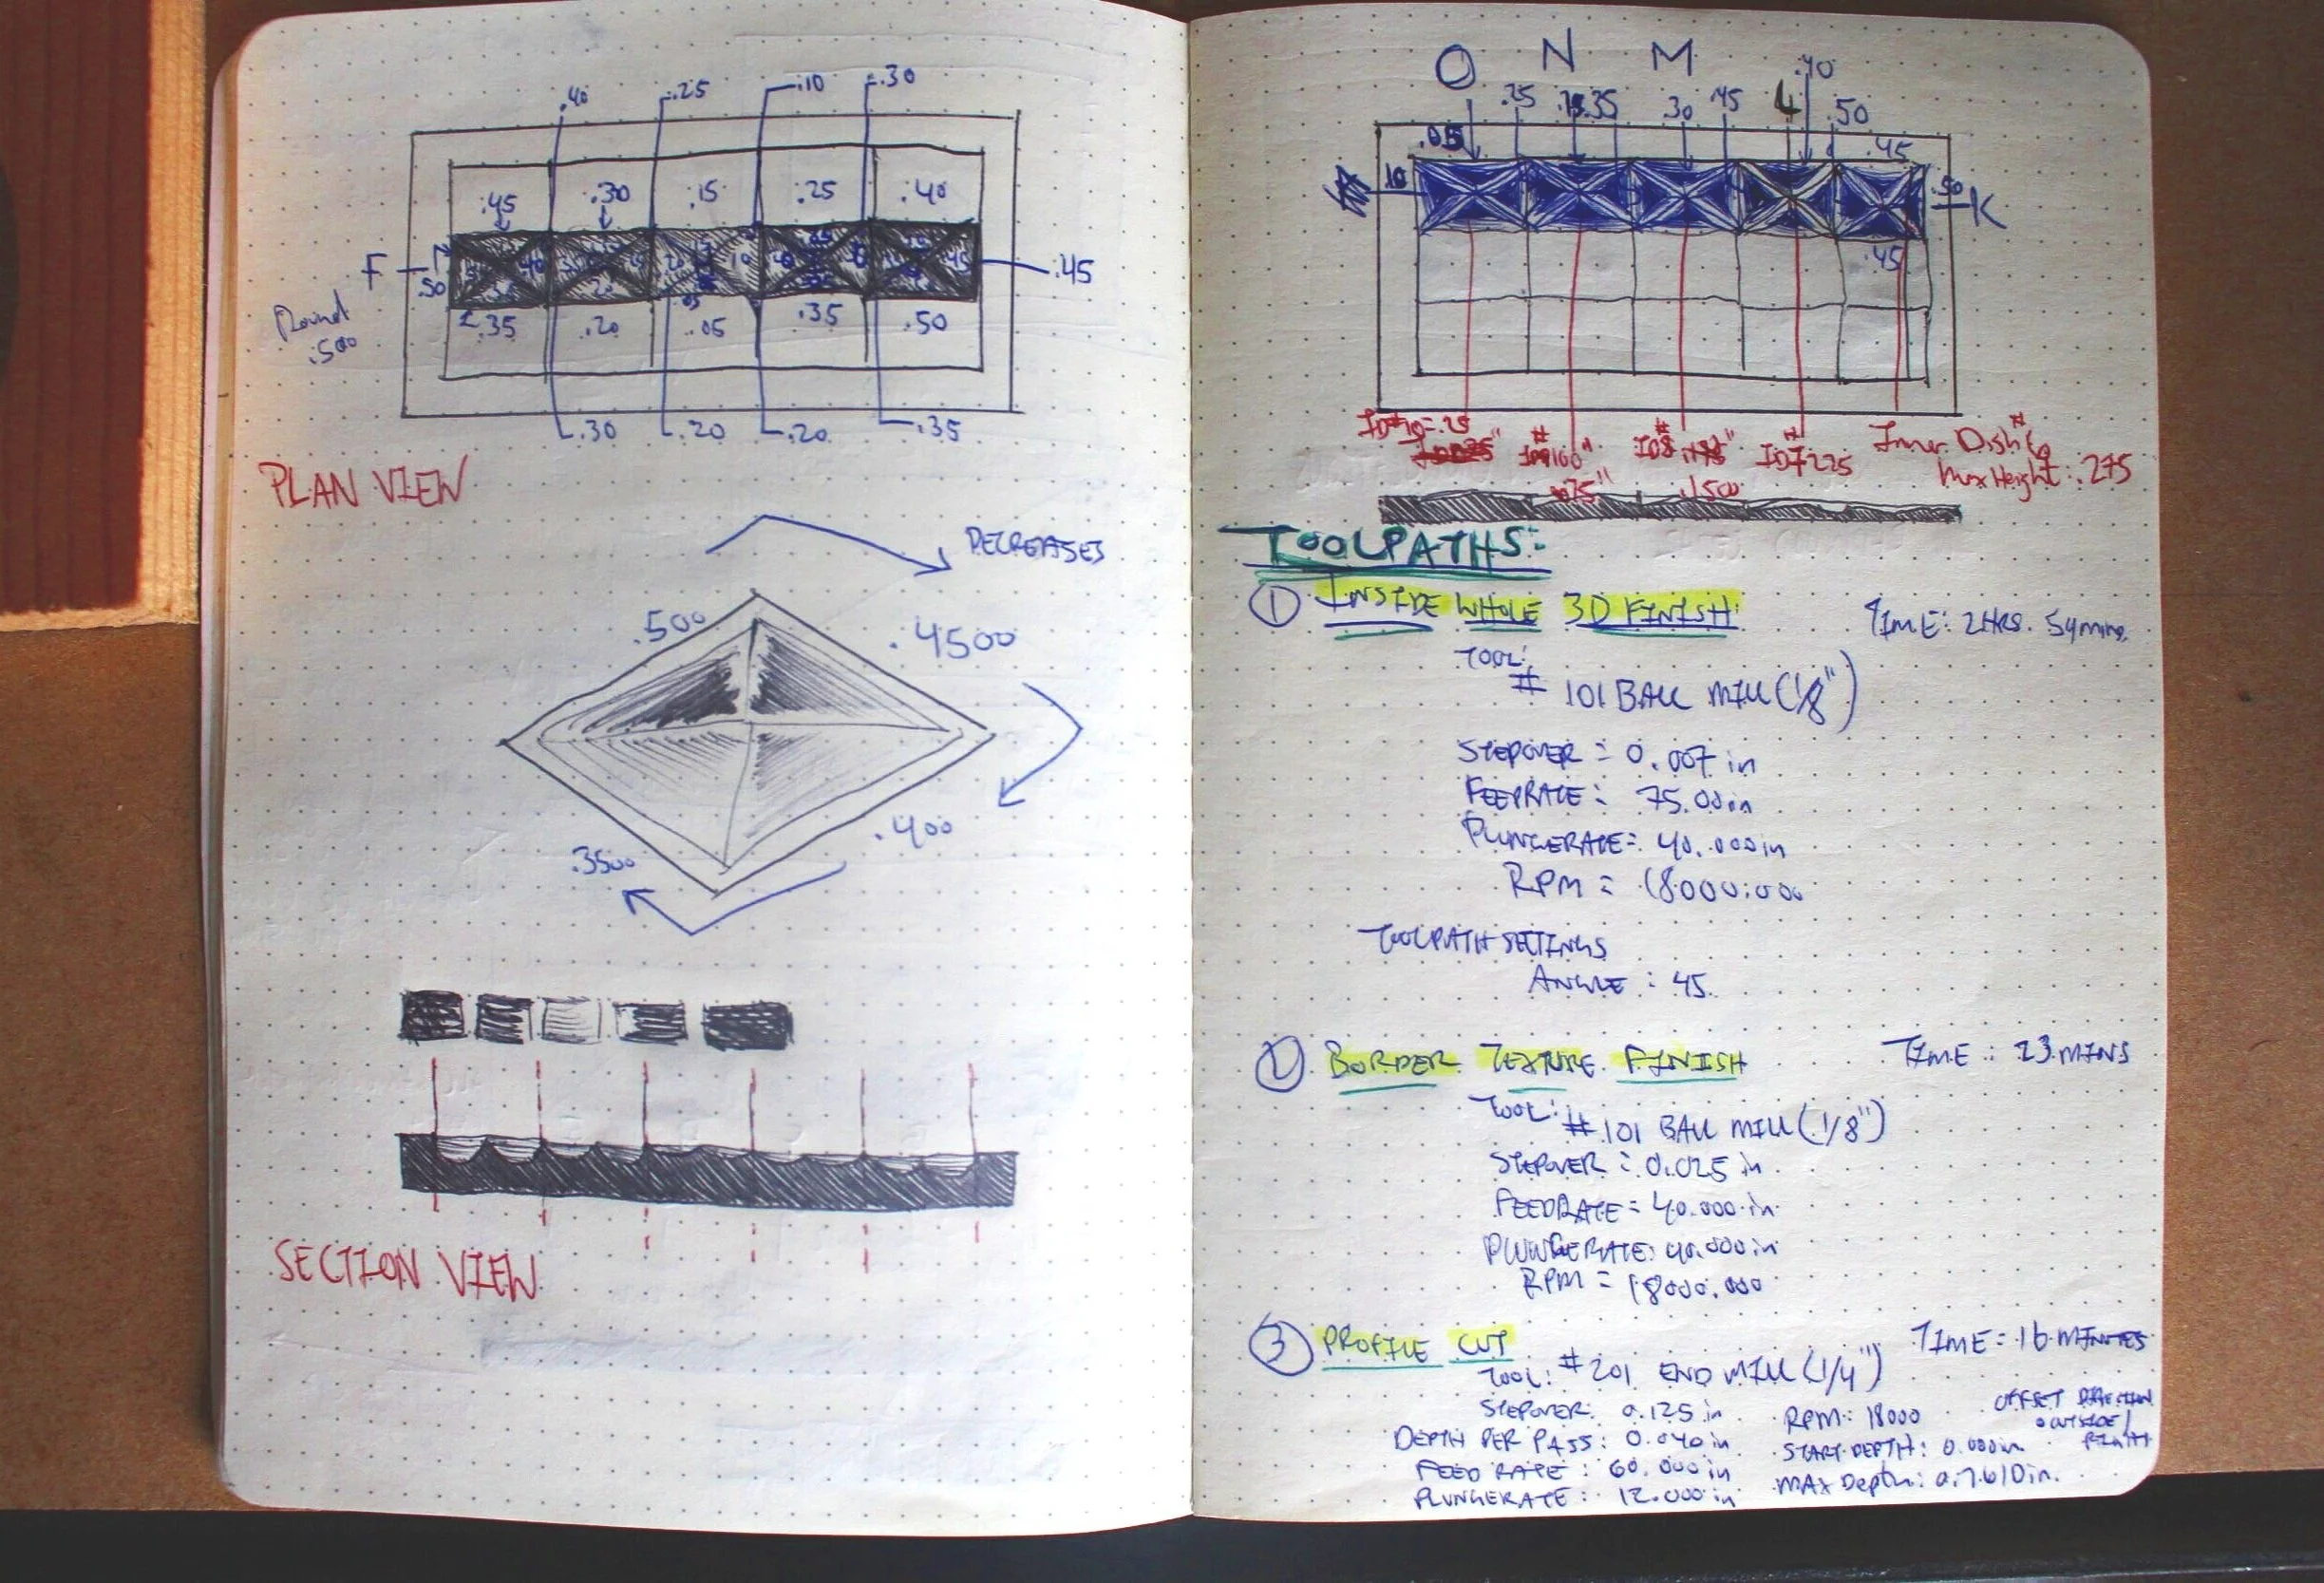 .40 .25 .10 .30
.45 .30 .15 .25 .40
F .50 .45
Round .500
.35 .20 .05 .35 .50
.30 .20 .20 .35
PLAN VIEW
DECREASES
.500 .4500
.400
.3500
SECTION VIEW
O N M L .40
.25 .35 .30 .45 .50
.05 .45
.10 .50 K
.45
ID#10=.25 Inner Dish #6
ID#7 .225 Max Height: .275
.075" .1500
TOOLPATHS:
① INSIDE WHOLE 3D FINISH: TIME: 2HRS. 54mins.
TOOL:
# 101 BALL MILL (1/8")
STEPOVER = 0.007 in
FEEDRATE: 75.00in
PLUNGERATE: 40.000in
RPM = 18000.000
TOOLPATH SETTINGS
ANGLE: 45
② BORDER TEXTURE FINISH TIME: 23 MINS
TOOL:
# 101 BALL MILL (1/8")
STEPOVER = 0.025 in
FEEDRATE = 40.000 in
PLUNGERATE: 40.000 in
RPM = 18000.000
③ PROFILE CUT TIME = 16 MINUTES
TOOL: #201 END MILL (1/4")
STEPOVER: 0.125 in RPM: 18000 OFFSET DIRECTION
OUTSIDE/
DEPTH PER PASS: 0.040 in START DEPTH: 0.000in RIGHT
FEED RATE: 60.000 in MAX Depth: 0.7610in.
PLUNGERATE: 12.000 in